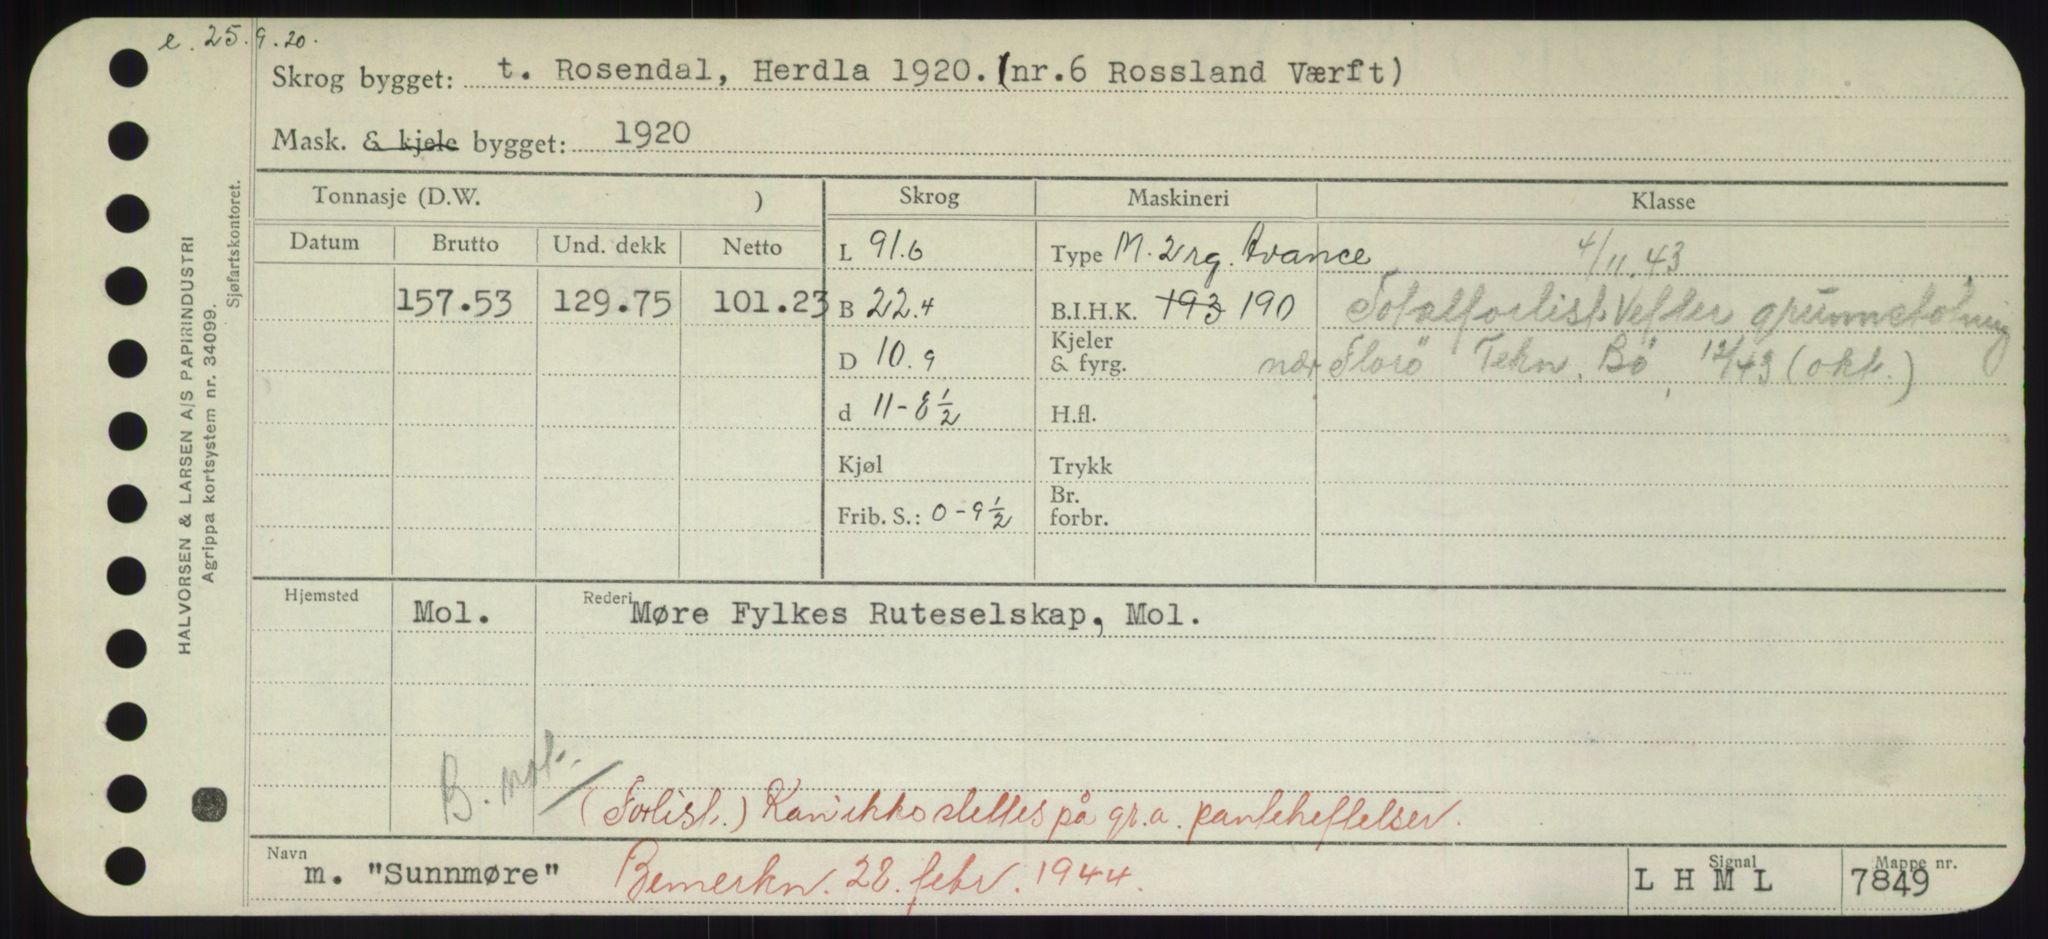 e. 25.9.20.
Skrog bygget: t. Rosendal, Herdla 1920. (nr.6 Rossland Værft)
Mask. & kjele bygget: 1920
Tonnasje (D.W. )
Skrog
Maskineri
Klasse
Datum
Brutto
Und. dekk
Netto
157.53
129.75
101.23
L 91.6
B 22.4
D 10.9
d 11-8½
Kjøl
Frib. S.: 0-9½
Type M. 2 rg. Avance
B.I.H.K. 193 190
Kjeler
& fyrg.
H.fl.
Trykk
Br.
forbr.
4/11.43
Totalforlist efter grunnstøtning
nær Florø Tekn. Bø, 12/43 (okt.)
Hjemsted
Mol.
Rederi
Møre Fylkes Ruteselskap, Mol.
B. mol.
(Forlist.) Kan ikke slettes på gr.a. panteheftelser.
Navn
m. "Sunnmøre"
Bemerkn. 28. febr. 1944.
Signal
L H M L
Mappe nr.
7849
HALVORSEN & LARSEN A/S PAPIRINDUSTRI
Agrippa kortsystem nr. 34099.
Sjøfartskontoret.